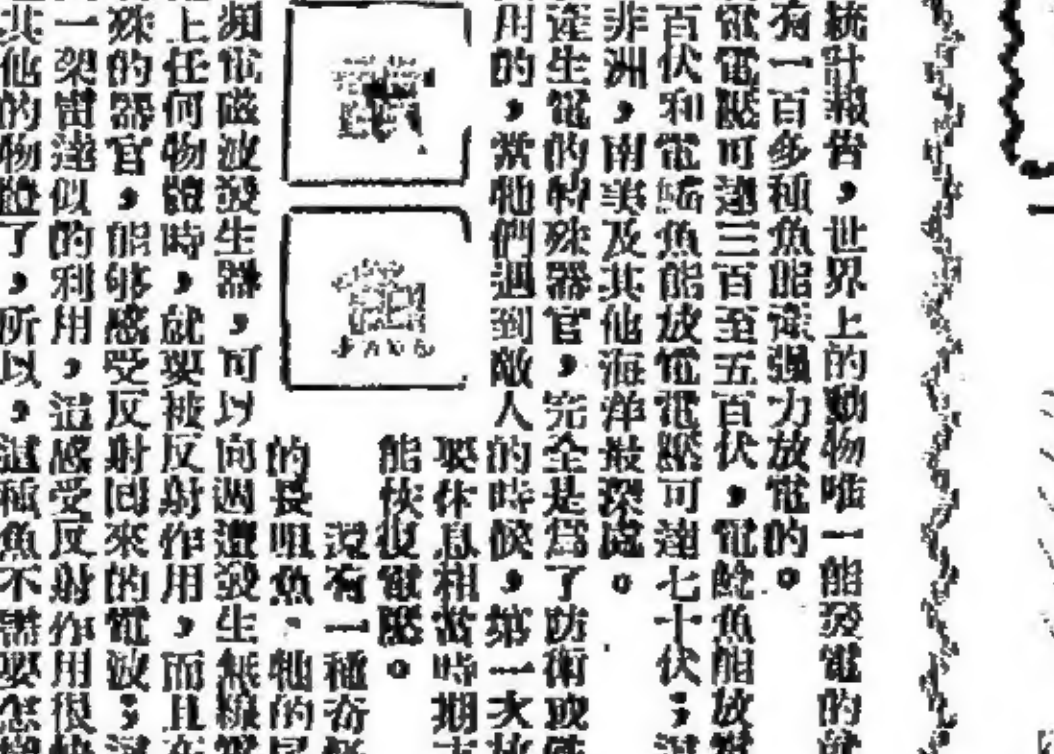 統計報告，世界上的動物唯一能發電的
有一百多種魚能產強力放電的。
電電壓可達三百至五百伏，電鯰魚能放電
百伏和電鰩魚能放電電壓可達七十伏；
非洲，南美及其他海洋最深處。
產生電的特殊器官，完全是爲了防衛或
用的，當牠們遇到敵人的時候，第一次放
要休息相當時期
能恢復電壓。
還有一種奇
的長咀魚。牠的尾
頻電磁波發生器，可以向週遭發生無線電
上任何物體時，就要被反射作用，而且在
殊的器官，能够感受反射回來的電波；
一架雷達似的利用，這感受反射作用很快
其他的物體了，所以，這種魚不需要怎樣